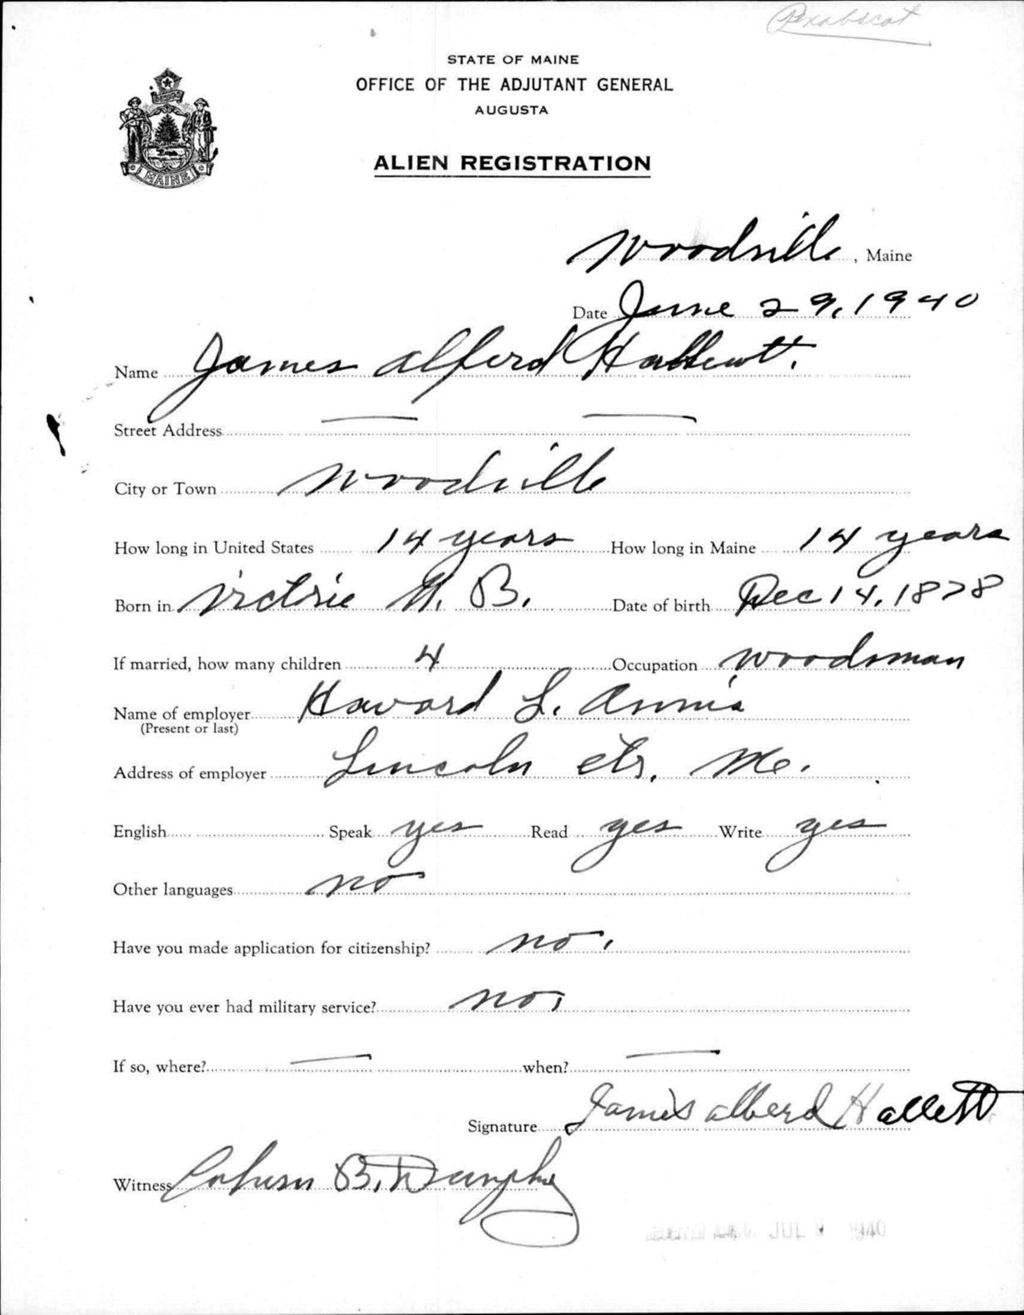 Penobscot
STATE OF MAINE
OFFICE OF THE ADJUTANT GENERAL
AUGUSTA
ALIEN REGISTRATION
MAINE
Woodville, Maine
Date June 29, 1940
Name James Alferd
Street Address
City or Town Woodville
How long in United States 14 years How long in Maine 14 years
Born in Victrie N. B. Date of birth Dec 14, 1878
If married, how many children 4 Occupation woodsman
Name of employer Havard L. Annis
(Present or last)
Address of employer Lincoln Ctr, Me.
English Speak yes Read yes Write yes
Other languages no
Have you made application for citizenship? no.
Have you ever had military service? no,
If so, where? when?
Signature James alberd Hallett
Witness B. Dunphy
JUL 1940